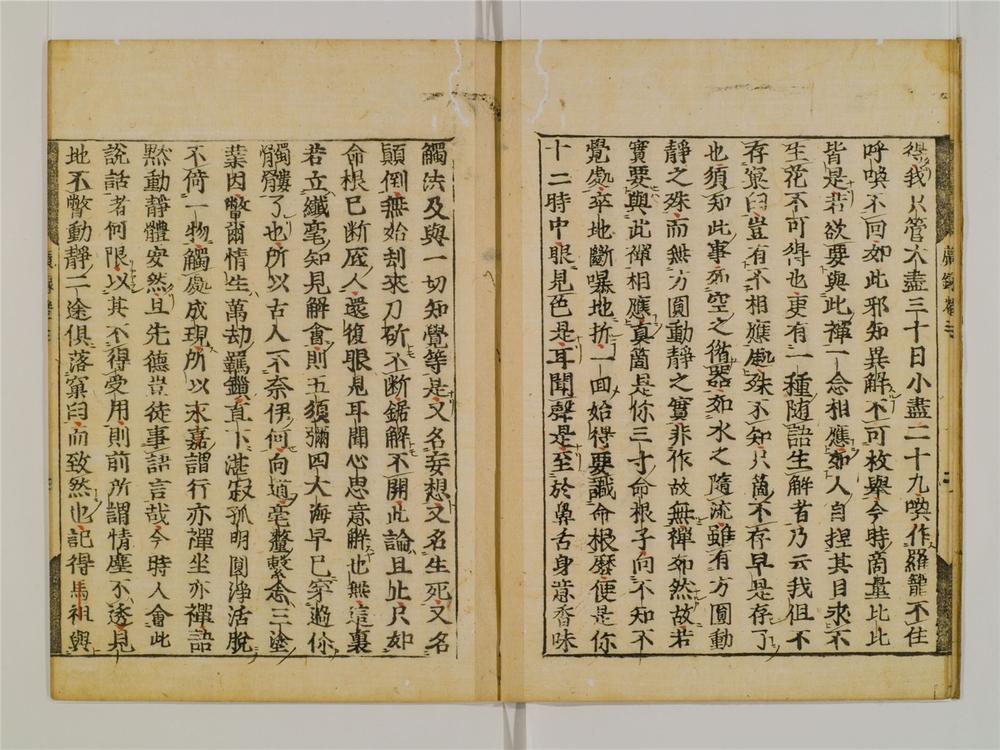 得我只管大盡三十日小盡二十九喚作羅籠不住
呼喚不回如此邪知異解不可枚舉今時商量比比
皆是若欲要與此禪一念相應如人自捏其目求不
生花不可得也更有一種随語生解者乃云我但不
存窠臼豈有不相應處殊不知只箇不存早是存了
也須知此事如空之循器如水之随流雖有方圓動
靜之殊而無方圓動靜之實非作故無禪如然故若
實要與此禪相應真箇是你三寸命根子向不知不
覺處卒地斷曝地折一回始得要識命根麼便是你
十二時中眼見色是耳聞聲是至於鼻舌身意香味
觸法及與一切知覺等是又名妄想又名生死又名
顛倒無始刼來刀斫不断鋸解不開此論且止只如
命根已断底人還復眼見耳聞心思意解也無這裏
若立纖毫知見解會則五須彌四大海早已穿過你
髑髏了也所以古人不奈伊何向道毫釐繫念三塗
業因瞥爾情生萬劫羈鎖直下湛寂孤明圓淨活脫
不倚一物觸處成現所以永嘉謂行亦禪坐亦禪語
默動靜體安然且先德豈徒事語言哉今時人會此
說話者何限以其不得受用則前所謂情塵不透見
地不瞥動靜二途俱落窠臼而致然也記得馬祖與